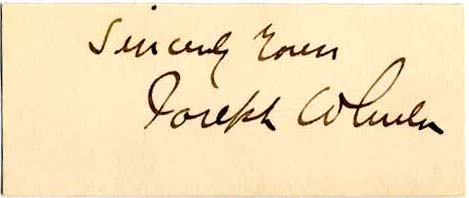 Sincerely Yours
Joseph Wheeler